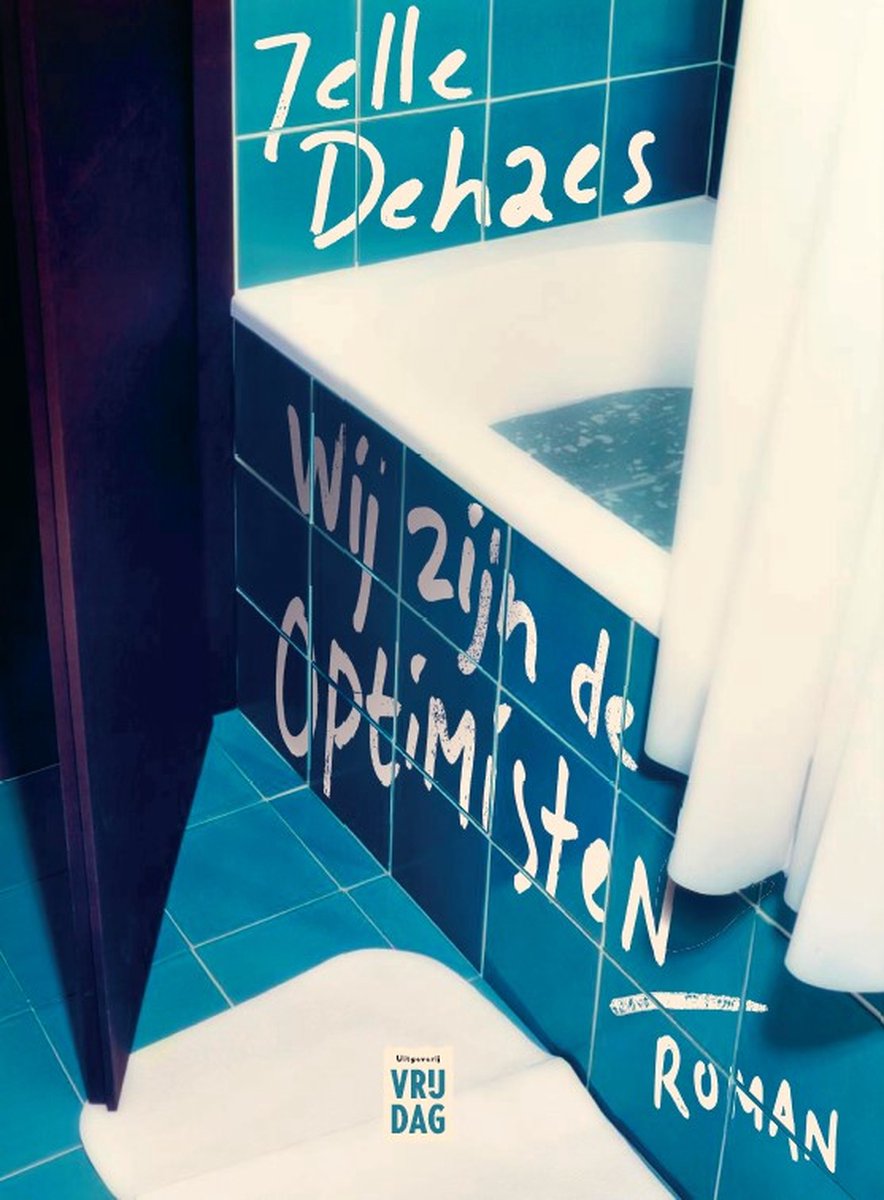 Jelle
Dehaes
Wij zijn de
Optimisten
ROMAN
Uitgeverij
VRIJ
DAG